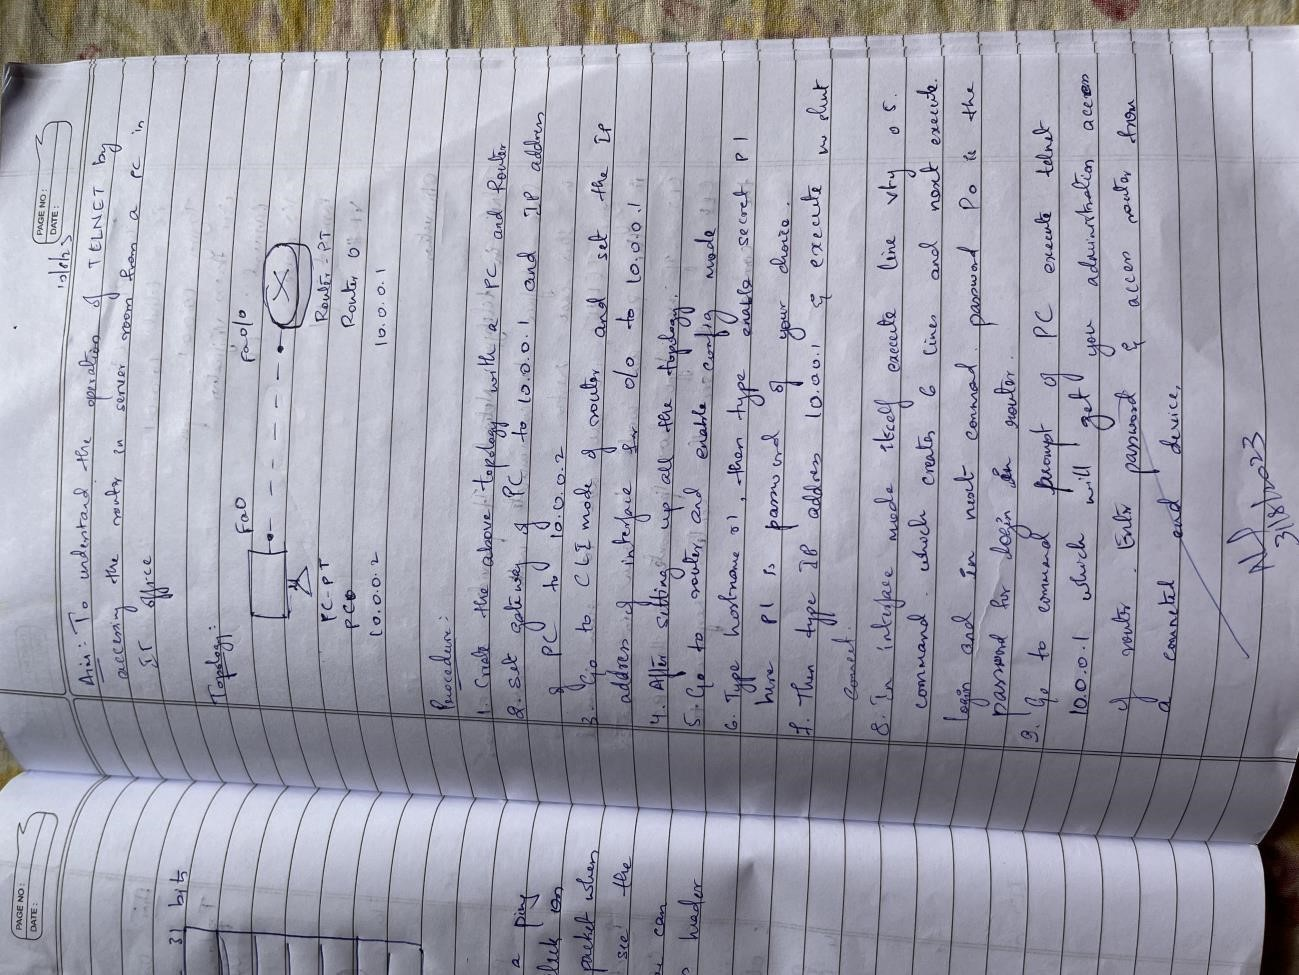 PAGE NO:
DATE:
10/8/23
Aim: To understand the operation of TELNET by
accessing the router in server room from a PC in
IT office
Topology:
Fa0 Fa0/0
PC-PT Router-PT
PC0 Router 0
10.0.0.2 10.0.0.1
Procedure:
1. Create the above topology with a PC and Router
2. Set gateway of PC to 10.0.0.1 and IP address
of PC to 10.0.0.2
3. Go to CLI mode of router and set the IP
address of interface fa 0/0 to 10.0.0.1
4. After setting up all the topology.
5. Go to router and enable config mode
6. Type hostname r1, then type enable secret P1
here P1 is password of your choice.
7. Then type IP address 10.0.0.1 & execute no shut
8. In interface mode itself execute line vty 0 5.
command. which creates 6 lines and next execute.
login and in next command. password P0 is the
password for login in router.
9. Go to command prompt of PC execute telnet
10.0.0.1 which will get you administration access
of router. Enter password & access router from
a connected end device.
31/8/2023
PAGE NO:
DATE:
31 bits
a ping
click on
packet when
see the
can
header